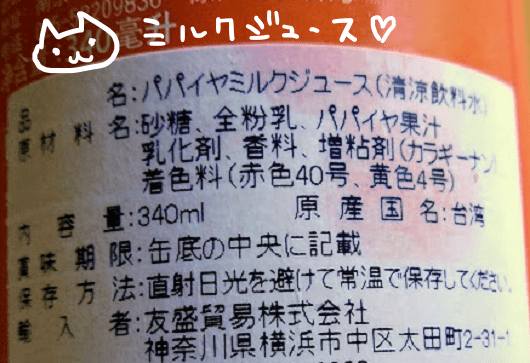 ミルクジュース♡
340毫升
品名:パパイヤミルクジュース(清涼飲料水)
原材料名:砂糖、全粉乳、パパイヤ果汁
乳化剤、香料、増粘剤(カラギーナン)
着色料(赤色40号、黄色4号)
内容量:340ml 原産国名:台湾
賞味期限:缶底の中央に記載
保存方法:直射日光を避けて常温で保存してください。
輸入者:友盛貿易株式会社
神奈川県横浜市中区太田町2-31-1